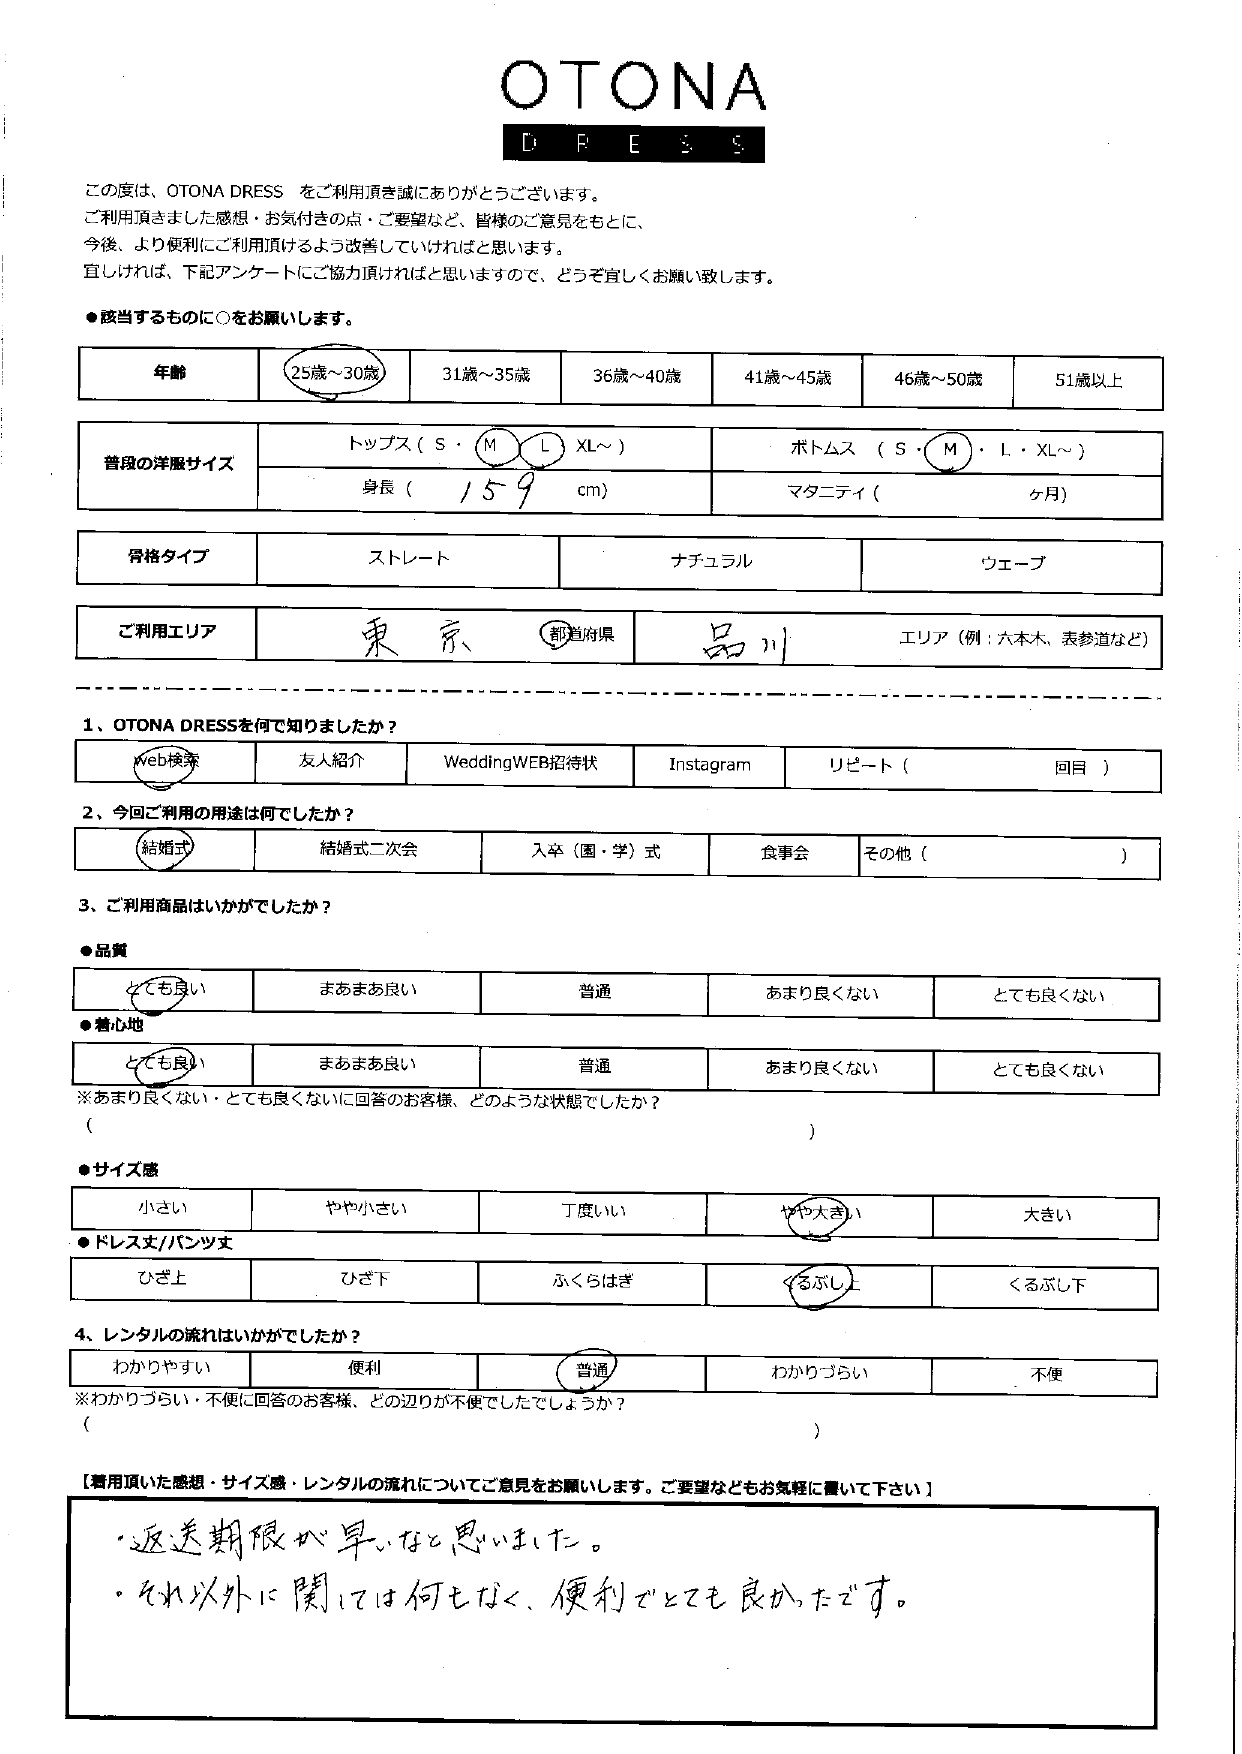 OTONA
DRESS
この度は、OTONA DRESS をご利用頂き誠にありがとうございます。
ご利用頂きました感想・お気付きの点・ご要望など、皆様のご意見をもとに、
今後、より便利にご利用頂けるよう改善していければと思います。
宜しければ、下記アンケートにご協力頂ければと思いますので、どうぞ宜しくお願い致します。
●該当するものに○をお願いします。
年齢 25歳～30歳 31歳～35歳 36歳～40歳 41歳～45歳 46歳～50歳 51歳以上
普段の洋服サイズ トップス ( S ・ M L XL～ ) ボトムス ( S ・ M ・ L ・ XL～ )
身長 ( 159 cm) マタニティ ( ヶ月)
骨格タイプ ストレート ナチュラル ウェーブ
ご利用エリア 東京 都道府県 品川 エリア（例：六本木、表参道など）
1、OTONA DRESSを何で知りましたか？
Web検索 友人紹介 WeddingWEB招待状 Instagram リピート ( 回目 )
2、今回ご利用の用途は何でしたか？
結婚式 結婚式二次会 入卒（園・学）式 食事会 その他 ( )
3、ご利用商品はいかがでしたか？
●品質
とても良い まあまあ良い 普通 あまり良くない とても良くない
●着心地
とても良い まあまあ良い 普通 あまり良くない とても良くない
※あまり良くない・とても良くないに回答のお客様、どのような状態でしたか？
( )
●サイズ感
小さい やや小さい 丁度いい やや大きい 大きい
●ドレス丈/パンツ丈
ひざ上 ひざ下 ふくらはぎ くるぶし上 くるぶし下
4、レンタルの流れはいかがでしたか？
わかりやすい 便利 普通 わかりづらい 不便
※わかりづらい・不便に回答のお客様、どの辺りが不便でしたでしょうか？
( )
【着用頂いた感想・サイズ感・レンタルの流れについてご意見をお願いします。ご要望などもお気軽に書いて下さい】
・返送期限が早いなと思いました。
・それ以外に関しては何もなく、便利でとても良かったです。